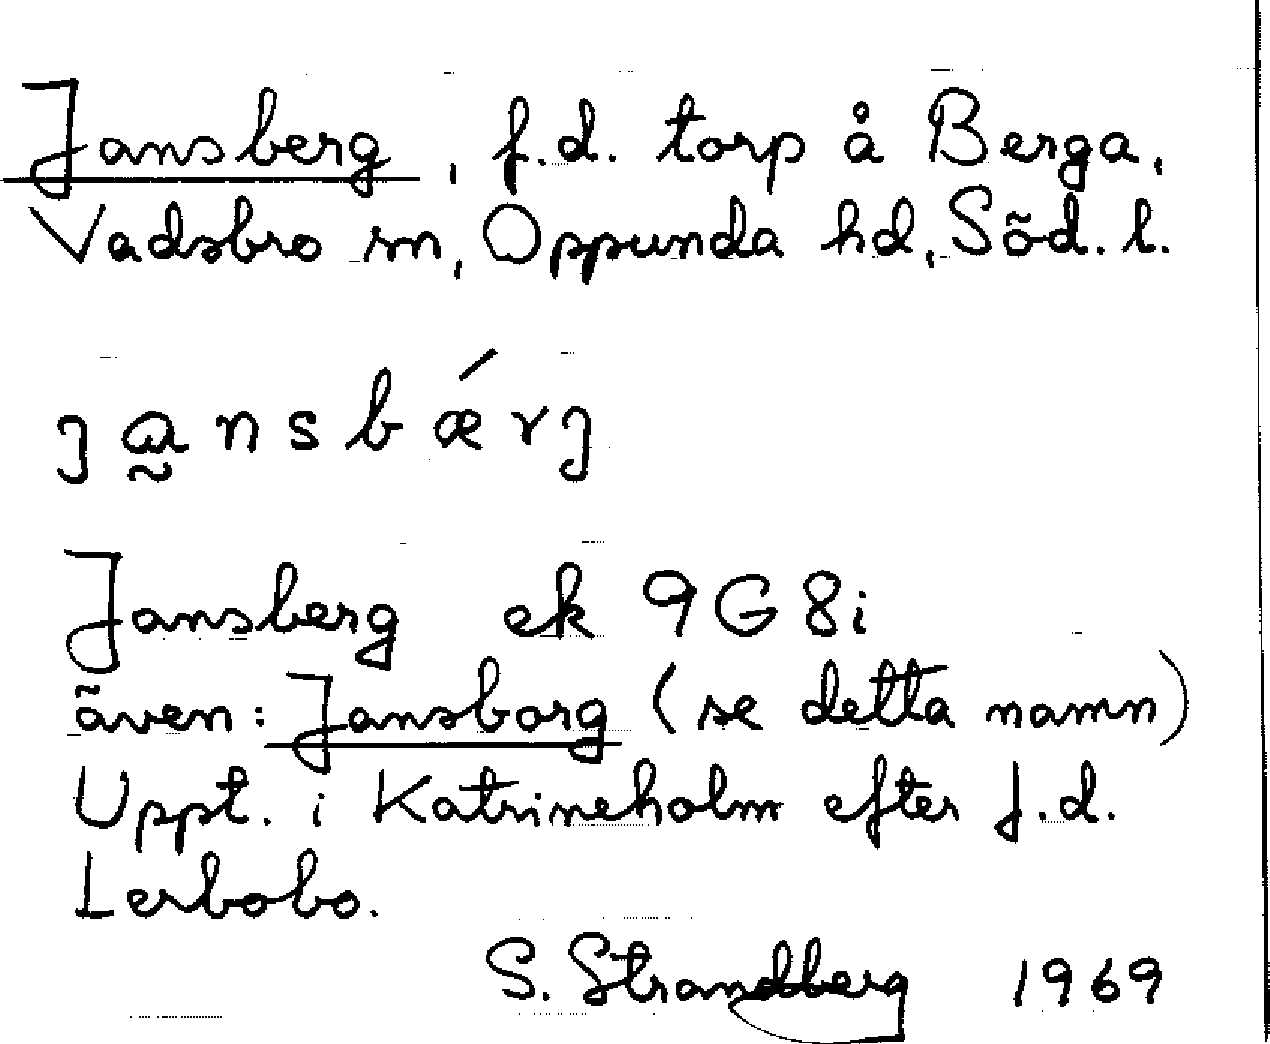 Jansberg, f.d. torp å Berga,
Vadsbro sn, Oppunda hd, Söd. l.
ja̰nsbǽrj
Jansberg ek 9G8i
även: Jansborg (se detta namn)
Uppt. i Katrineholm efter f.d.
Lerbobo.
S. Strandberg 1969